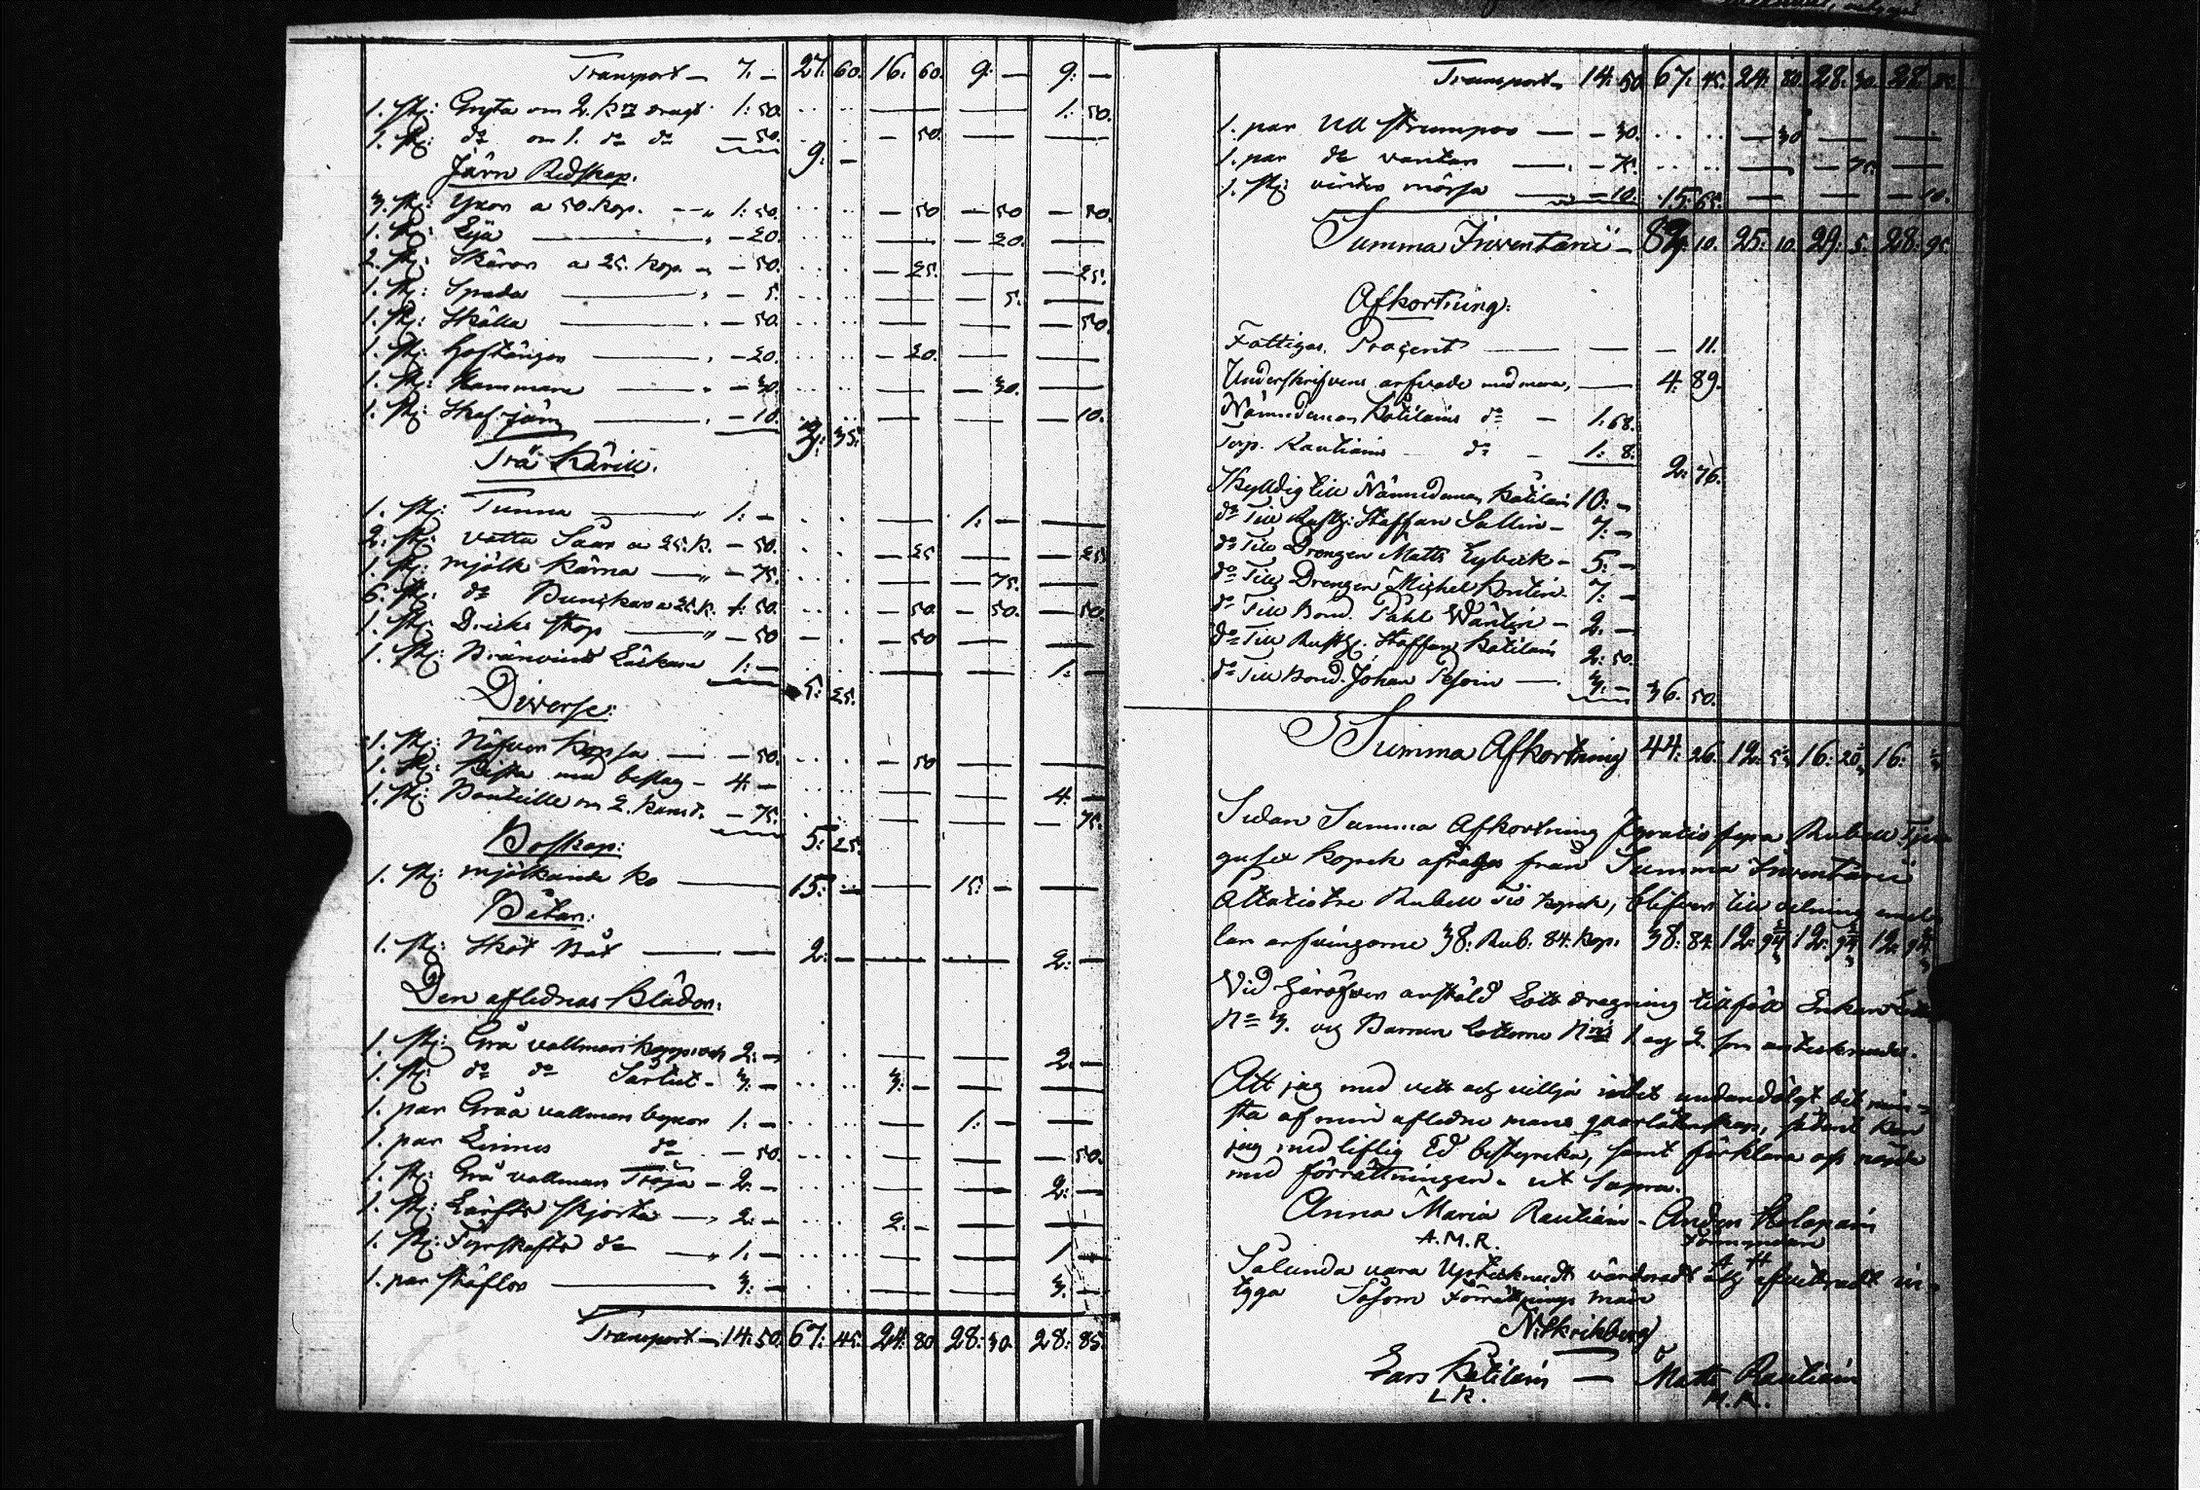 Transport — 7. — 27. 60. 16. 60. 9. — 9. —
1. st: Gryta om 2. dragt 1: 50. — — 1: 50.
1. st: do om 1. do do — 50. — 50. — —
9: —
Järn Redskap.
3. st: Yxor a 50. kop. — 1: 50. — 50 — 50 — 50.
1. st: Lija — 20. — — 20. —
2. st: Skäror a 25. kop. — 50. — 25. — — 25.
1. st: Spada — 5. — — 5. —
1. st: Skälla — 50. — — — 50.
1. st: Hoftånger — 20. — 20. — —
1. st: Hammare — 30. — — 30. —
1. st: Skaf järn — 10. — — — 10.
3: 35.
Trä Kärill.
1. st: Tunna — 1: — — 1: — —
2. st: vattu Såar a 25. k. — 50. — 25 — — 25
1. st: mjölk Kärna — 75. — — 75. —
6. st: do Bunckar a 25. k. 1: 50. — 50. — 50. — 50.
1. st: Dricks stop — 50 — 50 — —
1. st: Bränvins Läckare 1: — — — 1: —
5: 25.
Diverse:
1. st: Näfver Kopsa — 50. — 50 — —
1. st: Kista med beslag — 4. — — — 4. —
1. st: Bouteille om 2. Kann. — 75. — — — 75.
5: 25.
Boskap:
1. st: mjölkande ko — 15: — — 15: — —
Båtar:
1. st: Sköt Båt — — 2: — — — 2: —
Den aflednas Kläder:
1. st: Grå vallmars 2: — — — 2: —
1. st: do do Sürtut — 3: — 3: — — —
1. par Gråa vallmars byxor 1: — — 1: — —
1. par Linnes do — 50. — — — 50.
1. st: Grå vallmars Tröja — 2: — — — 2: —
1. st: Lärfts skjorta — 2: — 2: — — —
1. st: Fyrskafts do — 1: — — — 1: —
1. par stöflor — 3: — — — 3: —
Transport — 14: 50. 67: 45. 24: 80. 28: 30. 28: 85.
Transport 14: 50 67: 45. 24: 80. 28: 30. 28: 85
1. par Ull strumpor — — 30. — 30 — —
1. par do vantar — — 75. — — 75. —
1. st: vinter mössa — — 10. 15: 65. — — — 10.
Summa Inventarii — 83: 10. 25: 10. 29: 5. 28: 95.
Afkortning:
Fattigas Procent — — — 11.
Underskrifvens arfvode med mera, — 4: 89.
Nämndeman Kötiläins do — 1: 68.
Torp. Rautiains do — 1: 8.
2: 76.
Skyldig till Nämndeman Kötilain 10: —
do Till Rusth: Staffan Sallin — 7: —
do Till Drengen Matts — 5: —
do Till Drengen Michel 7: —
do Till Bond. Pahl — 2: —
do Till Rusth: Staffan Kötilain 2: 50.
do Till Bond. Johan — 3: — 36. 50.
Summa Afkortning 44: 26. 12: 16: 16:
Sedan Summa Afkortning fyratio fyra Rubell Tju-
gusex kopek afdrages från Summa Inventarii
Åttatiotre Rubell Tio kopek, blifver till delning emel-
lan arfvingarne 38: Rub: 84. kop. 38: 84. 12: 12: 12:
Vid häröfver anstäld Lott dragning tillföll Enkan Lott
No 3. og Barnen Lotterne 1 og 2. som antecknades.
Att jag med vett och vilja intet undandöljt det min-
sta af min aflidne mans qvarlåtenskap, sådant kan
jag med liflig Ed bestyrcka, samt förklara oss nögde
med förrättningen. ut Supra.
Anna Maria Rautiain — Anders
A. M. R. Förmyndare
Sålunda vara Uptecknadt värderadt och afvittradt in-
tyga Såsom Förrättnings män
Lars Kötiläin — Matts Rautiain
L K. M. R.